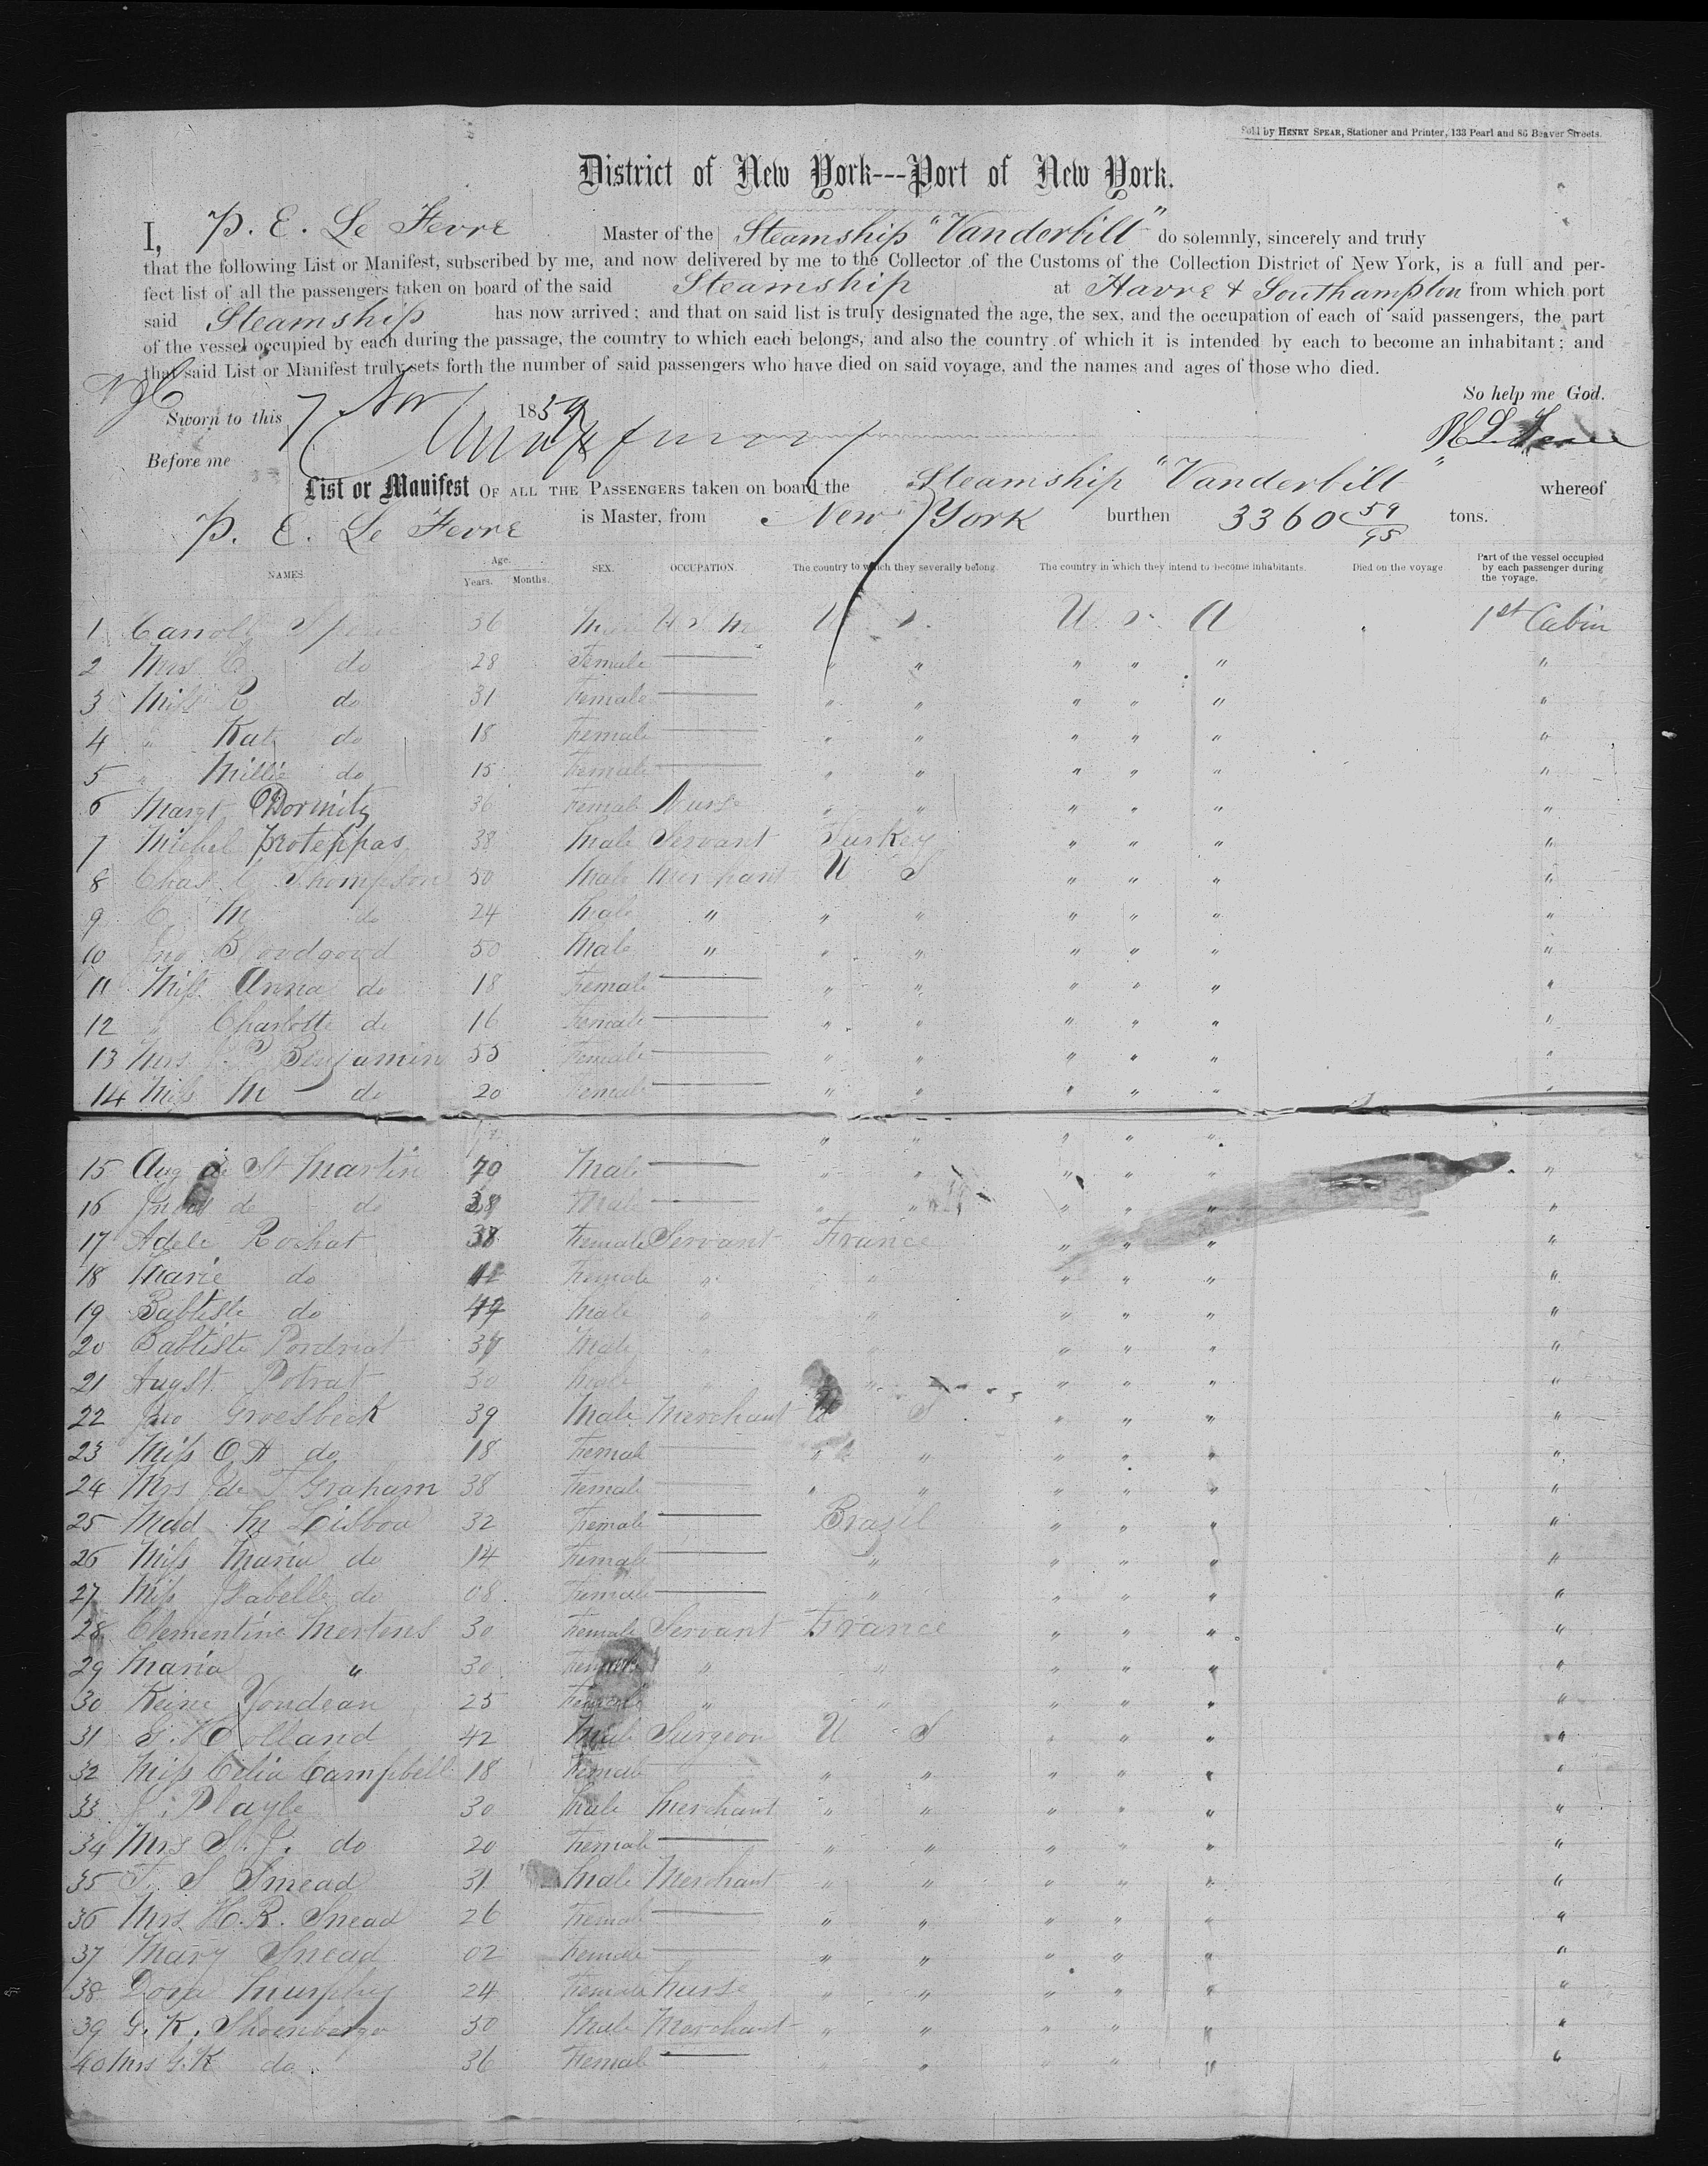 Sold by HENRY SPEAR, Stationer and Printer, 133 Pearl and 86 Beaver Streets.
District of New York---Port of New York.
I, P. E. Le Fevre Master of the Steamship "Vanderbilt" do solemnly, sincerely and truly
that the following List or Manifest, subscribed by me, and now delivered by me to the Collector of the Customs of the Collection District of New York, is a full and per-
fect list of all the passengers taken on board of the said Steamship at Havre & Southampton from which port
said Steamship has now arrived; and that on said list is truly designated the age, the sex, and the occupation of each of said passengers, the part
of the vessel occupied by each during the passage, the country to which each belongs, and also the country of which it is intended by each to become an inhabitant; and
that said List or Manifest truly sets forth the number of said passengers who have died on said voyage, and the names and ages of those who died.
So help me God.
Sworn to this 7 Nov 1859
Before me
List or Manifest OF ALL THE PASSENGERS taken on board the Steamship "Vanderbilt" whereof
P. E. Le Fevre is Master, from New York burthen 3360 59/95 tons.
NAMES. Age. Years. Months. SEX. OCCUPATION. The country to which they severally belong. The country in which they intend to become inhabitants. Died on the voyage Part of the vessel occupied by each passenger during the voyage.
1 Carroll Spence 36 U S A 1st Cabin
2 Mrs C do 28 Female — " " " " " "
3 Miss R do 31 Female — " " " " " "
4 " Kate do 18 Female — " " " " " "
5 " Millie do 15 Female — " " " " " "
6 Margt Dormitz 36 Female Nurse " " " " " "
7 Michel Proteppas 38 Male Servant Turkey " " " "
8 Chas C Thompson 50 Male Merchant U S " " " "
9 C M do 24 Male " " " " " " "
10 Jno Bloodgood 50 Male " " " " " " "
11 Miss Anna do 18 Female — " " " " " "
12 " Charlotte do 16 Female — " " " " " "
13 Mrs P Benjamin 55 Female — " " " " " "
14 Miss M do 20 Female — " " " " " "
15 Aug de St Martin 70 Male — " " " " " "
16 de do 38 Male — " " " " " "
17 Adele Roshat 38 Female Servant France " " " "
18 Marie do Female " " " " " "
19 Babtiste do 49 Male " " " " " "
20 Babtiste 34 Male " " " " " "
21 Augst Potrat 30 Male " " " " " "
22 Jno Groesbeck 39 Male Merchant U S " " " "
23 Miss C A do 18 Female — " " " " " "
24 Mrs J de T Graham 38 Female — " " " " " "
25 Mad M Lisboa 32 Female — Brazil " " " "
26 Miss Maria do 14 Female — " " " " "
27 Miss Isabelle do 08 Female — " " " " "
28 Clementine Mertens 30 Female Servant France " " " "
29 Maria " 30 Female " " " " " "
30 Reine Yondean 25 Female " " " " " "
31 G. Holland 42 Male Surgeon U S " " " "
32 Miss Celia Campbell 18 Female — " " " " " "
33 J. Playle 30 Male Merchant " " " " " "
34 Mrs S. J. do 20 Female — " " " " " "
35 T S Smead 31 Male Merchant " " " " " "
36 Mrs H. R. Snead 26 Female — " " " " " "
37 Mary Snead 02 Female — " " " " " "
38 Dora Murphy 24 Female Nurse " " " " " "
39 G. K. Shoenberger 50 Male Merchant " " " " " "
40 Mrs G. K do 36 Female — " " " " "